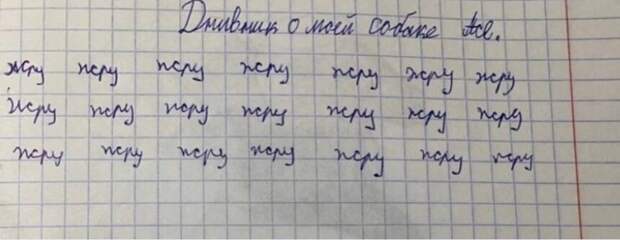 Днивник о моей собаке Асе.
жру жру жру жру жру жру жру
жру жру жру жру жру жру жру
жру жру жру жру жру жру жру